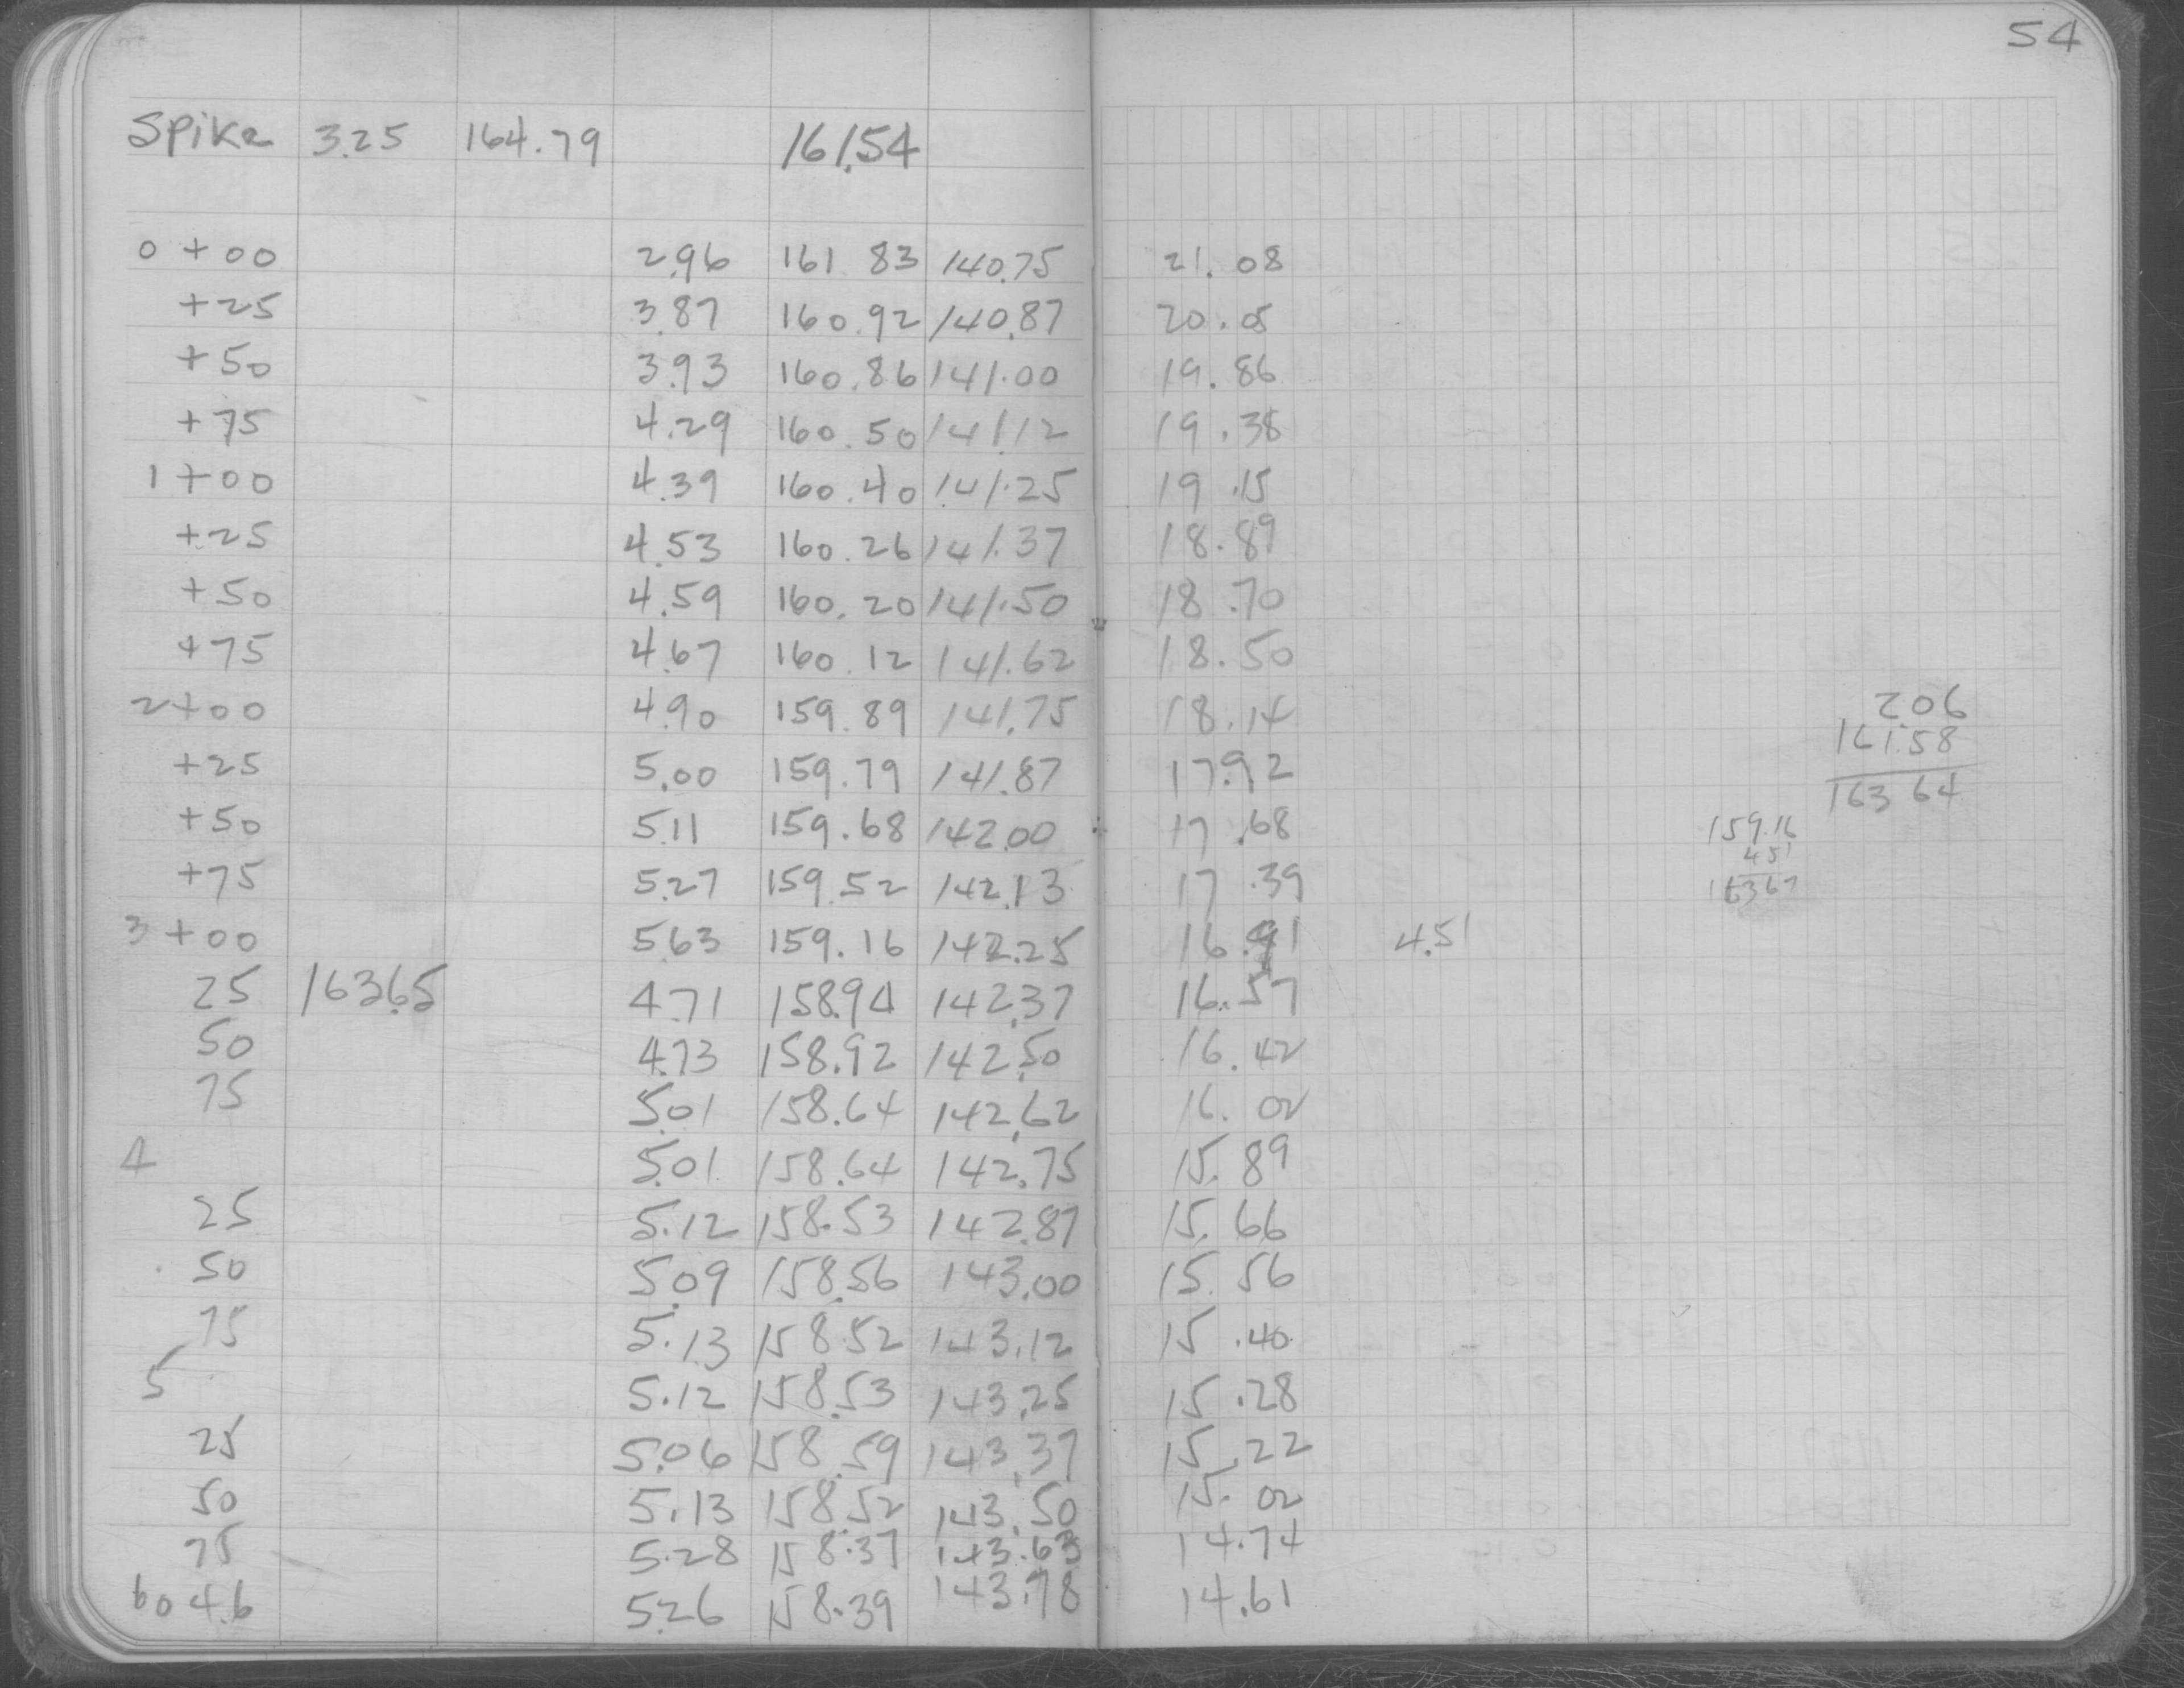 54
Spike 3.25 164.79 161.54
0+00 2.96 161 83 140.75 21.08
+25 3.87 160.92 140.87 20.05
+50 3.93 160.86 141.00 19.86
+75 4.29 160.50 141.12 19.38
1+00 4.39 160.40 141.25 19.15
+25 4.53 160.26 141.37 18.89
+50 4.59 160.20 141.50 18.70
+75 4.67 160.12 141.62 18.50
2+00 4.90 159.89 141.75 18.14
2.06
161.58
163 64
+25 5.00 159.79 141.87 17.92
+50 5.11 159.68 142.00 17.68
159.16
4 51
163 67
+75 5.27 159.52 142.13 17.39
3+00 5.63 159.16 142.25 16.91 4.51
25 163.65 4.71 158.94 142.37 16.57
50 4.73 158.92 142.50 16.42
75 5.01 158.64 142.62 16.02
4 5.01 158.64 142.75 15.89
25 5.12 158.53 142.87 15.66
50 5.09 158.56 143.00 15.56
75 5.13 158.52 143.12 15.40
5 5.12 158.53 143.25 15.28
25 5.06 158.59 143.37 15.22
50 5.13 158.52 143.50 15.02
75 5.28 158.37 143.63 14.74
6 04.6 5.26 158.39 143.78 14.61